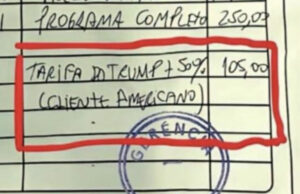 PROGRAMA COMPLETO 250,00
TARIFA DO TRUMP + 50% 105,00
(CLIENTE AMERICANO)
GERENCIA